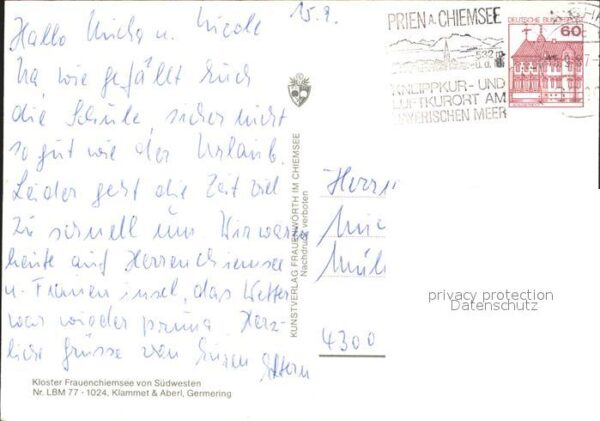 15.9.
Hallo Micha u. Nicole
Na, wie gefällt Euch
die Schule, sicher nicht
so gut wie der Urlaub.
Leider geht die Zeit viel
zu schnell um. Wir waren
heute auf Herrenchiemsee
u. Fraueninsel, das Wetter
war wieder prima. Herz-
liche Grüsse von Euren Eltern
Kloster Frauenchiemsee von Südwesten
Nr. LBM 77 - 1024, Klammet & Aberl, Germering
KUNSTVERLAG FRAUENWÖRTH IM CHIEMSEE
Nachdruck verboten
PRIEN A. CHIEMSEE
532
ü.d.M.
KNEIPPKUR- UND
LUFTKURORT AM
BAYERISCHEN MEER
DEUTSCHE BUNDESPOST
60
Herrn
4300
privacy protection
Datenschutz